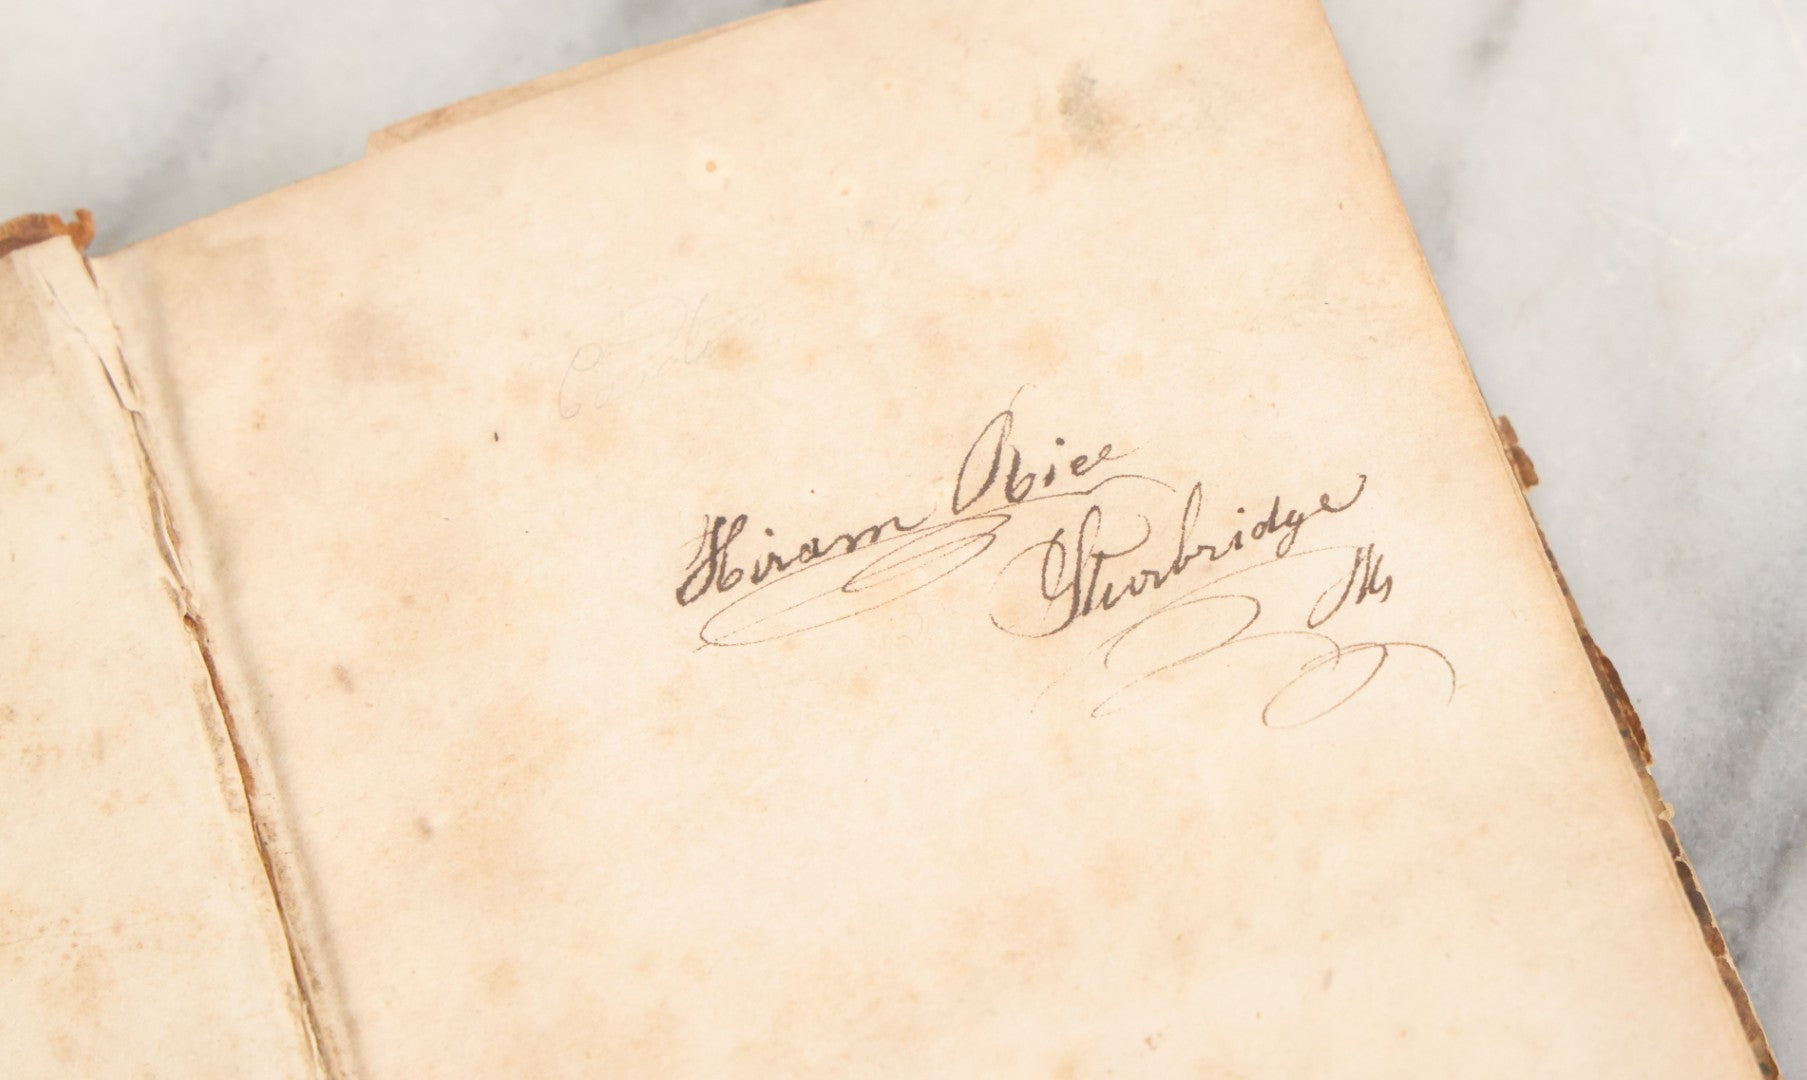 Hiram Rice
Sturbridge
Ms